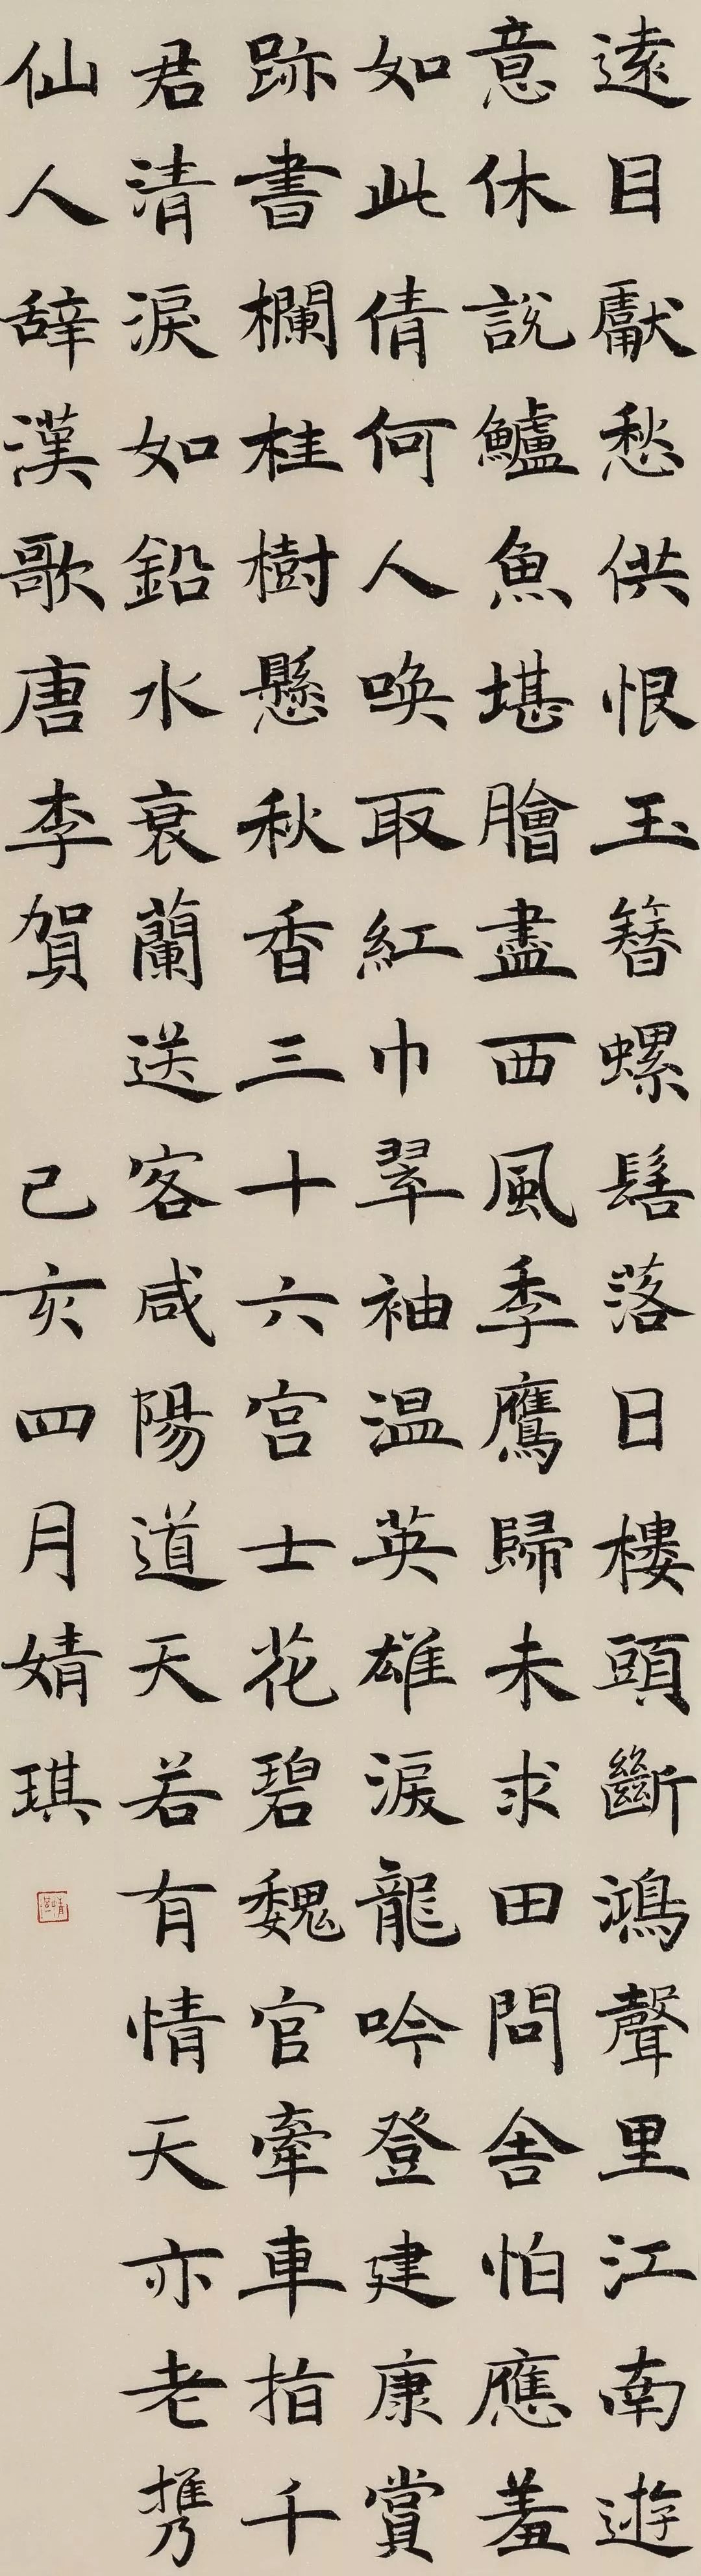 遠目獻愁供恨玉簪螺髻落日樓頭斷鴻聲里江南遊
意休說鱸魚堪膾盡西風季鷹歸未求田問舍怕應羞
如此倩何人喚取紅巾翠袖温英雄淚龍吟登建康賞
跡書欄桂樹懸秋香三十六宮士花碧魏官牽車指千
君清淚如鉛水衰蘭送客咸陽道天若有情天亦老携
仙人辞漢歌唐李賀 己亥四月婧琪